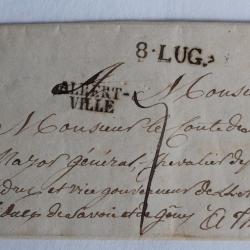 8 · LUG.
ALBERT-
VILLE
A Monsieur
Monsieur le Comte du
Major Général, Chevalier de
et vice gouverneur de
de Savoie et de
A